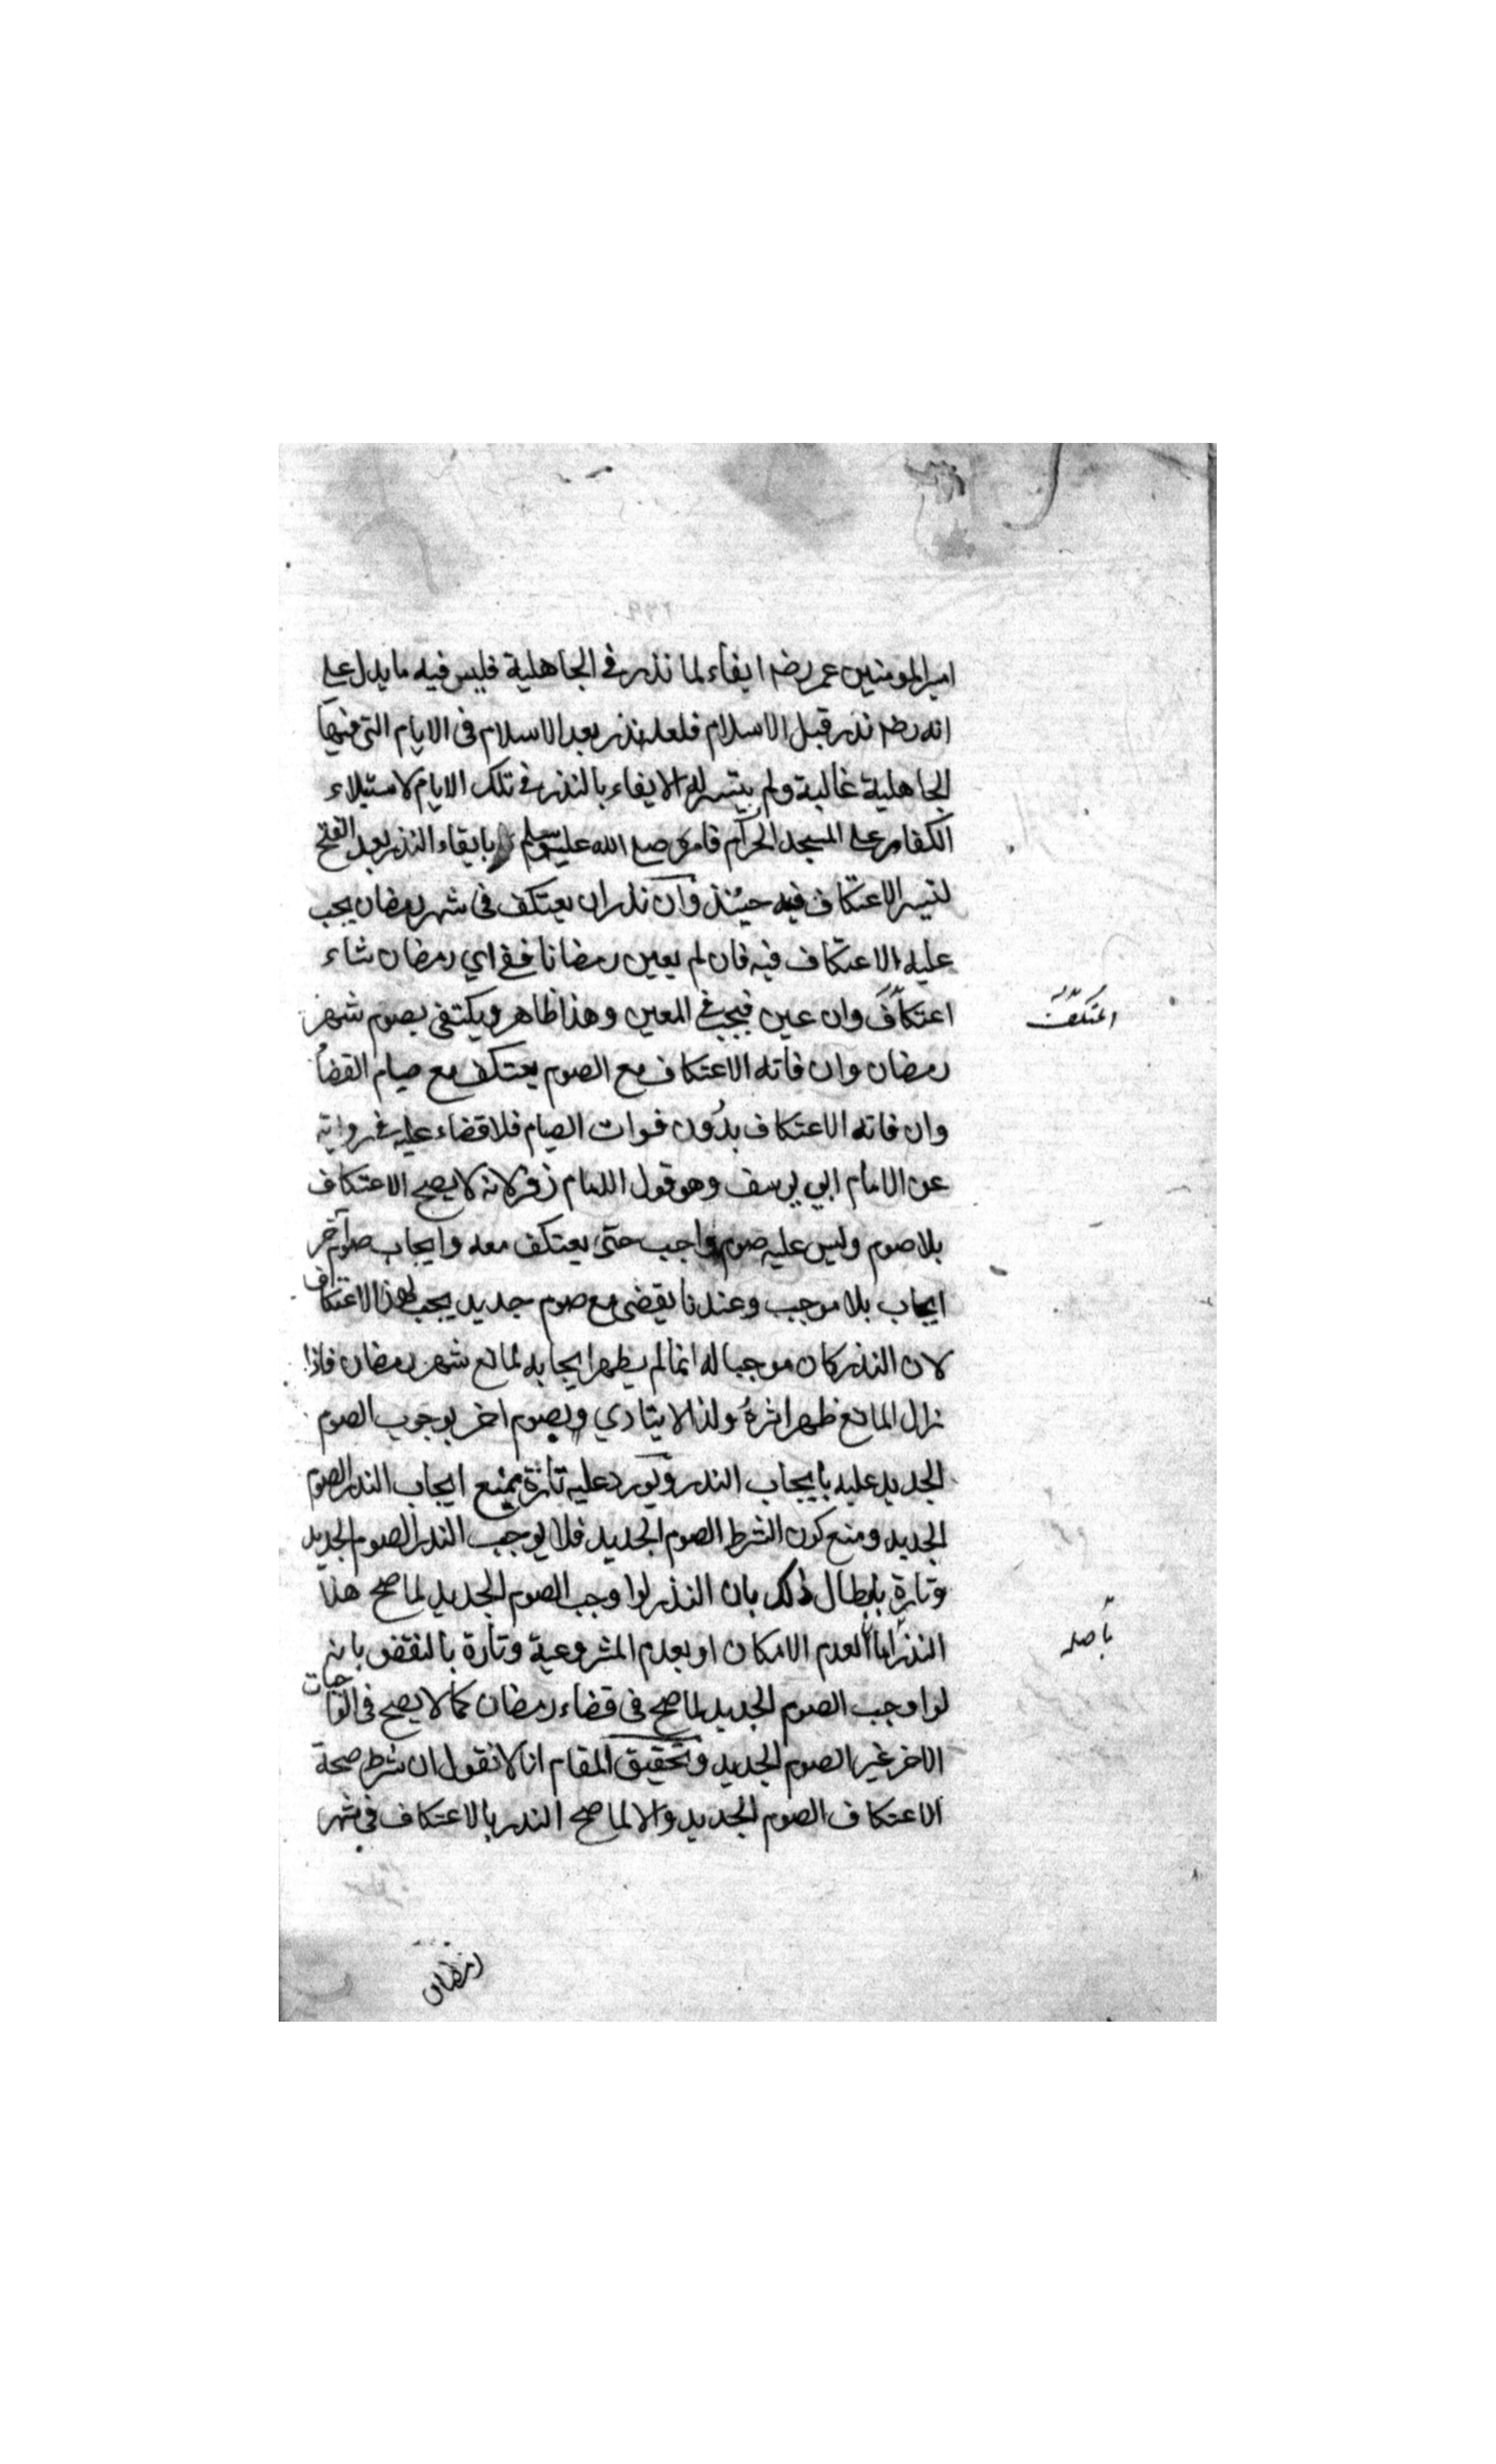 امير المومنين عمر رضه ايفاء لما نذر في الجاهلية فليس فيه ما يدل على
انه رضه نذر قبل الاسلام فلعله نذر بعد الاسلام في الايام التي فيها
الجاهلية غالبة ولم يتيسر له الايفاء بالنذر في تلك الايام لاستيلاء
الكفار على المسجد الحرام فامره صلى الله عليه وسلم بايفاء النذر بعد الفتح
لتيسر الاعتكاف فيه حينئذ وان نذر ان يعتكف في شهر رمضان يجب
عليه الاعتكاف فيه فان لم يعين رمضانا ففي اي رمضان شاء
اعتكاف وان عين فيجب في المعين وهذا ظاهر ويكتفي بصوم شهر
اعتكف
رمضان وان فاته الاعتكاف مع الصوم يعتكف مع صيام القضا
وان فاته الاعتكاف بدون فوات الصيام فلا قضاء عليه في رواية
عن الامام ابي يوسف وهو قول الامام زفر لانه لا يصح الاعتكاف
بلا صوم وليس عليه صوم واجب حتى يعتكف معه وايجاب صوم آخر
ايجاب بلا موجب وعندنا يقضى مع صوم جديد يجب لهذا الاعتكاف
لان النذر كان موجبا له انما لم يظهر ايجابه لمانع شهر رمضان فاذا
زال المانع ظهر اثره ولذا لا يتادي وبصوم اخر بوجوب الصوم
الجديد عليه بايجاب النذر ويورد عليه تارة بمنع ايجاب النذر الصوم
الجديد ومنع كون الشرط الصوم الجديد فلا يوجب النذر الصوم الجديد
وتارة بابطال ذلك بان النذر لو اوجب الصوم الجديد لما صح هذا
النذر اما لعدم الامكان او بعدم المشروعية وتارة بالنقض بانه
باصله
لو اوجب الصوم الجديد لما صح في قضاء رمضان كما لا يصح في الواجبات
الاخر غير الصوم الجديد وتحقيق المقام انا لا نقول ان شرط صحة
الاعتكاف الصوم الجديد والا لما صح النذر بالاعتكاف في شهر
رمضان